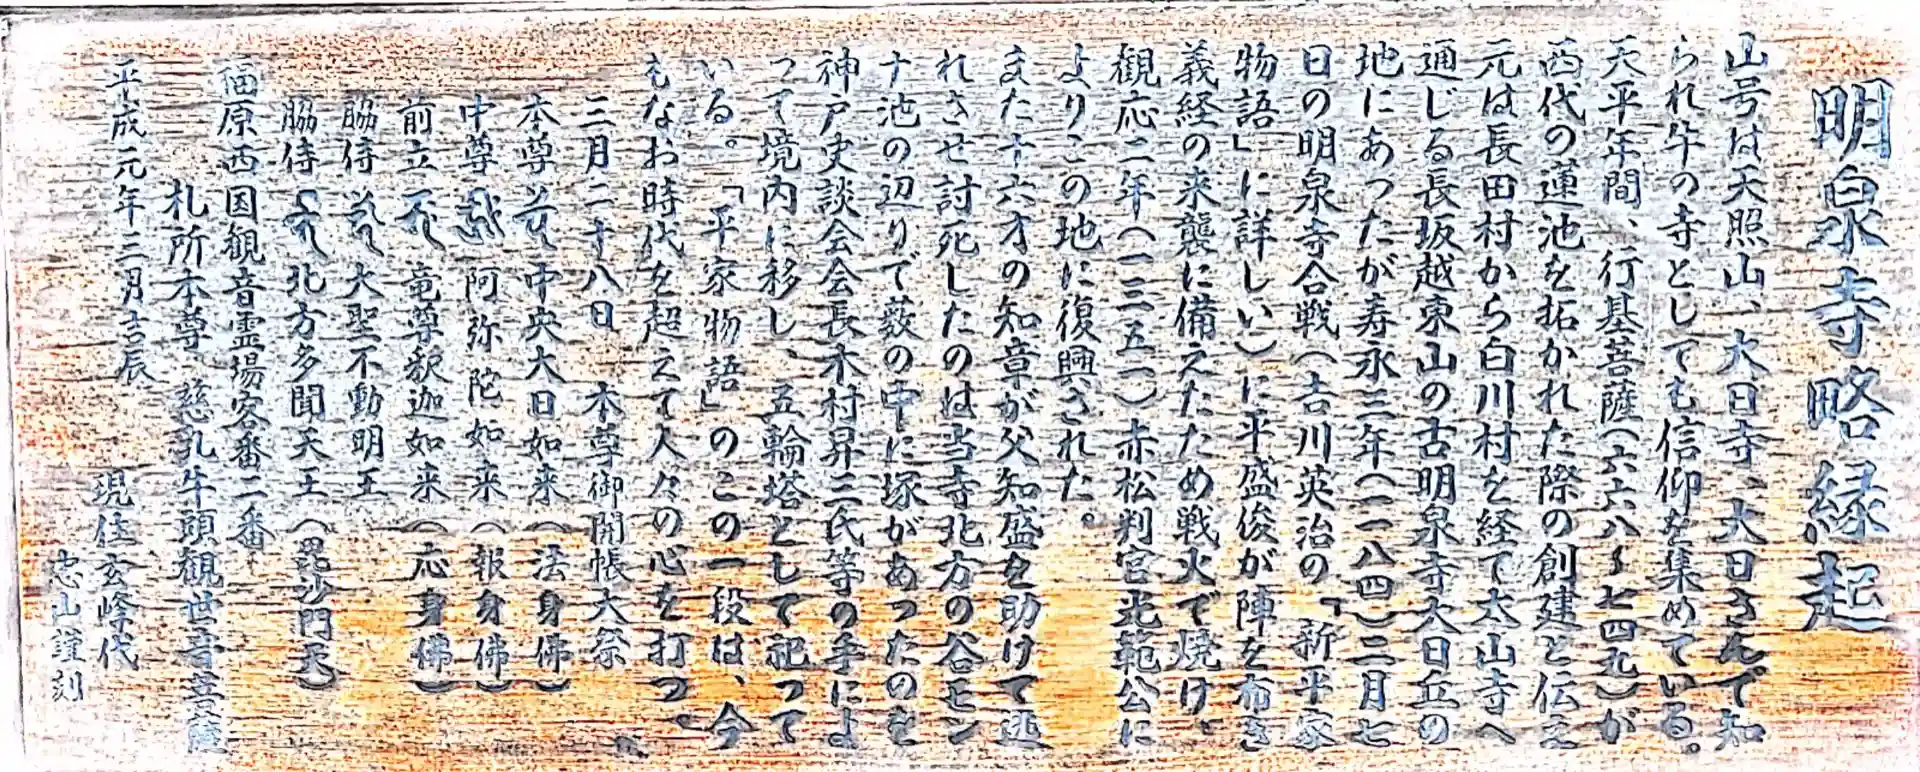 明泉寺略縁起
山号は天照山、大日寺、大日さんで知
られ牛の寺としても信仰を集めている。
天平年間、行基菩薩(六六八〜七四九)が
西代の蓮池を拓かれた際の創建と伝え
元は長田村から白川村を経て太山寺へ
通じる長坂越東山の古明泉寺大日丘の
地にあったが寿永三年(一一八四)二月七
日の明泉寺合戦(吉川英治の「新平家
物語」に詳しい)に平盛俊が陣を布き
義経の来襲に備えたため戦火で焼け、
観応二年(一三五一)赤松判官光範公に
よりこの地に復興された。
また十六才の知章が父知盛を助けて逃
れさせ討死したのは当寺北方の谷モン
ナ池の辺りで薮の中に塚があったのを
神戸史談会会長木村昇三氏等の手によ
って境内に移し、五輪塔として祀って
いる。「平家物語」のこの一段は、今
もなお時代を超えて人々の心を打つ。
三月二十八日 本尊御開帳大祭
本尊 中央大日如来(法身佛)
中尊 阿弥陀如来(報身佛)
前立 竜尊釈迦如来(応身佛)
脇侍 大聖不動明王
脇侍 北方多聞天王(毘沙門天)
福原西国観音霊場客番二番
札所本尊 慈乳牛頭観世音菩薩
平成元年三月吉辰
現住玄峰代
忠山謹刻